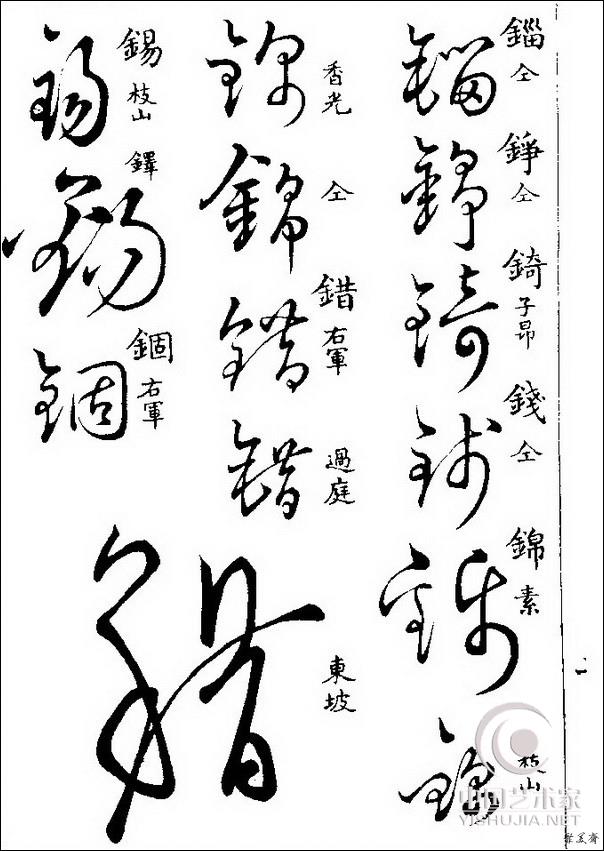 錙 仝
錚 仝
錡 子昂
錢 仝
錦 素
枝山
香光
仝
錯 右軍
過庭
東坡
錫 枝山
鐸
錮 右軍
中国艺术家
YISHUJIA.NET